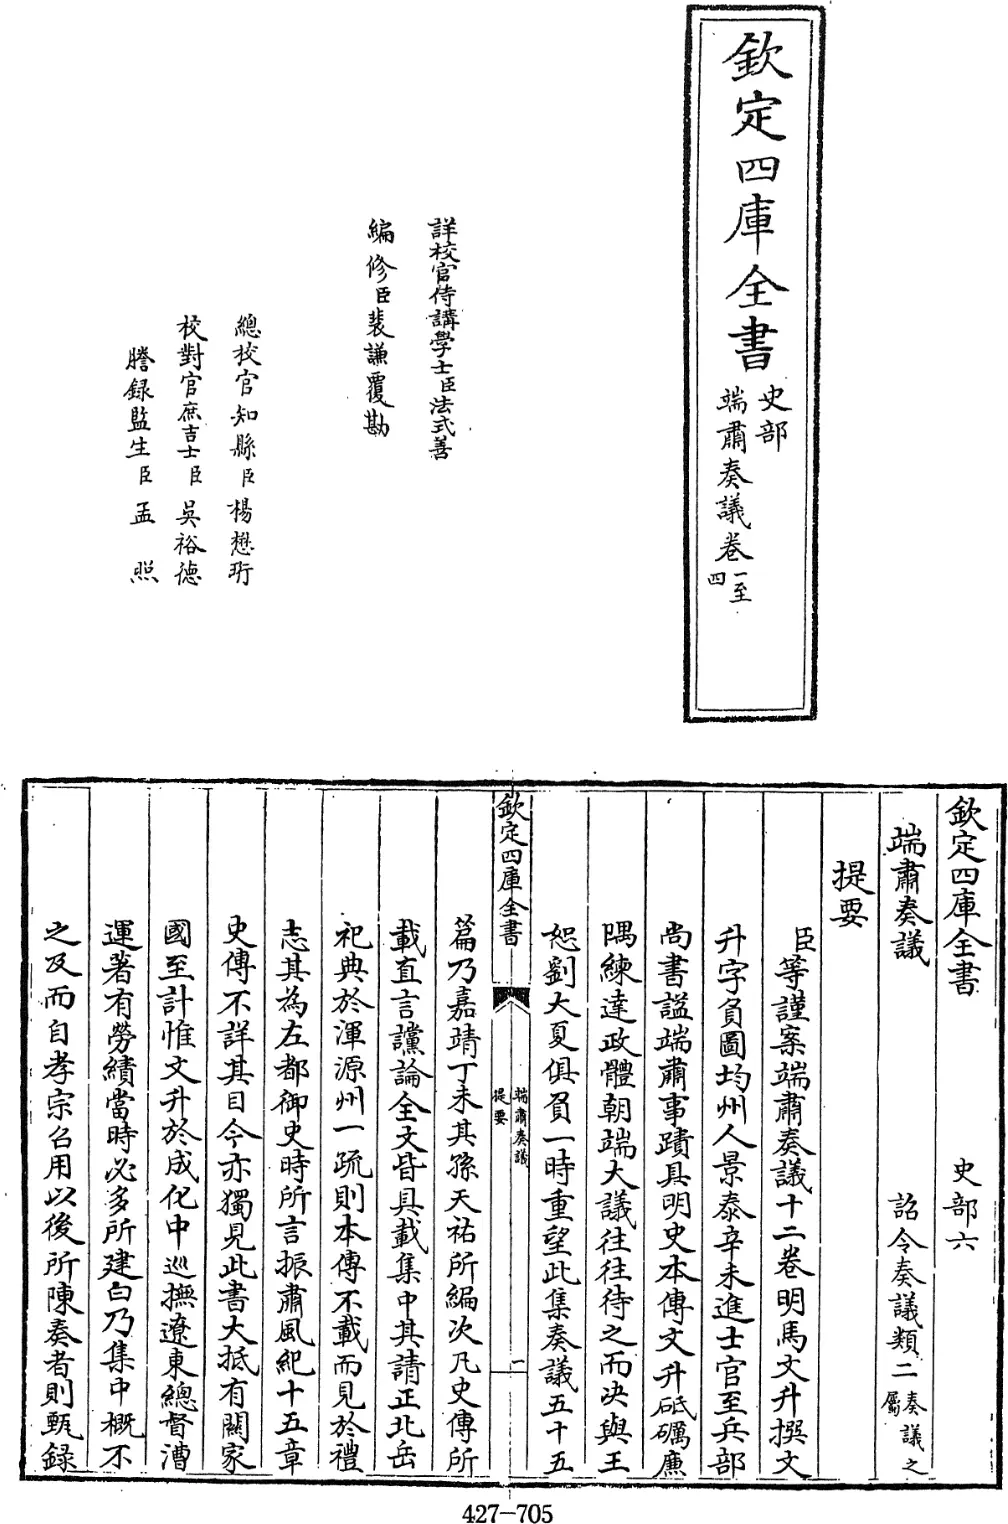 欽定四庫全書
史部
端肅奏議卷一至四
詳校官侍講學士臣法式善
編修臣裴謙覆勘
總校官知縣臣楊懋珩
校對官庶吉士臣吳裕德
謄録監生臣孟照
欽定四庫全書 史部六
端肅奏議 詔令奏議類二奏議之屬
提要
臣等謹案端肅奏議十二卷明馬文升撰文
升字負圖均州人景泰辛未進士官至兵部
尚書諡端肅事蹟具明史本傳文升砥礪廉
隅練達政體朝端大議往往待之而决與王
恕劉大夏俱負一時重望此集奏議五十五
欽定四庫全書
端肅奏議
提要
一
篇乃嘉靖丁未其孫天祐所編次凡史傳所
載直言讜論全文皆具載集中其請正北岳
祀典於渾源州一疏則本傳不載而見於禮
志其為左都御史時所言振肅風紀十五章
史傳不詳其目今亦獨見此書大抵有關家
國至計惟文升於成化中巡撫遼東總督漕
運著有勞績當時必多所建白乃集中概不
之及而自孝宗召用以後所陳奏者則甄録
427-705